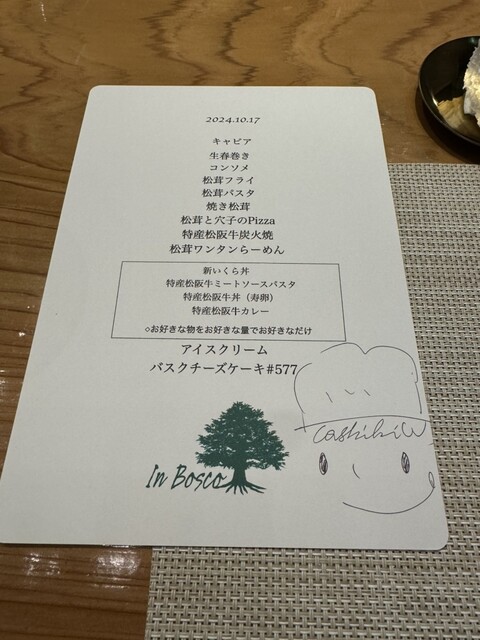 2024.10.17
キャビア
生春巻き
コンソメ
松茸フライ
松茸パスタ
焼き松茸
松茸と穴子のPizza
特産松阪牛炭火焼
松茸ワンタンらーめん
新いくら丼
特産松阪牛ミートソースパスタ
特産松阪牛丼（寿卵）
特産松阪牛カレー
◇お好きな物をお好きな量でお好きなだけ
アイスクリーム
バスクチーズケーキ#577
In Bosco